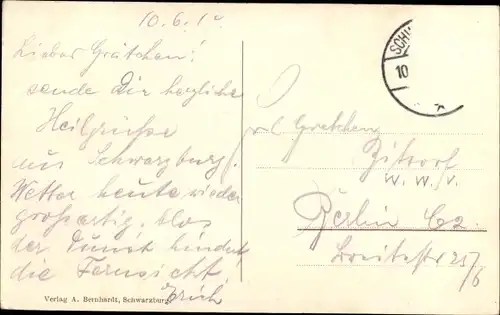 10.6.1
Liebes Gretchen!
sende Dir herzliche
Heilgrüße
aus Schwarzburg.
Wetter heute wieder
großartig, blos
der Dunst hindert
die Fernsicht
Erich
Verlag A. Bernhardt, Schwarzburg
SCH
10
Gretchen
W. W. V.
Berlin C2